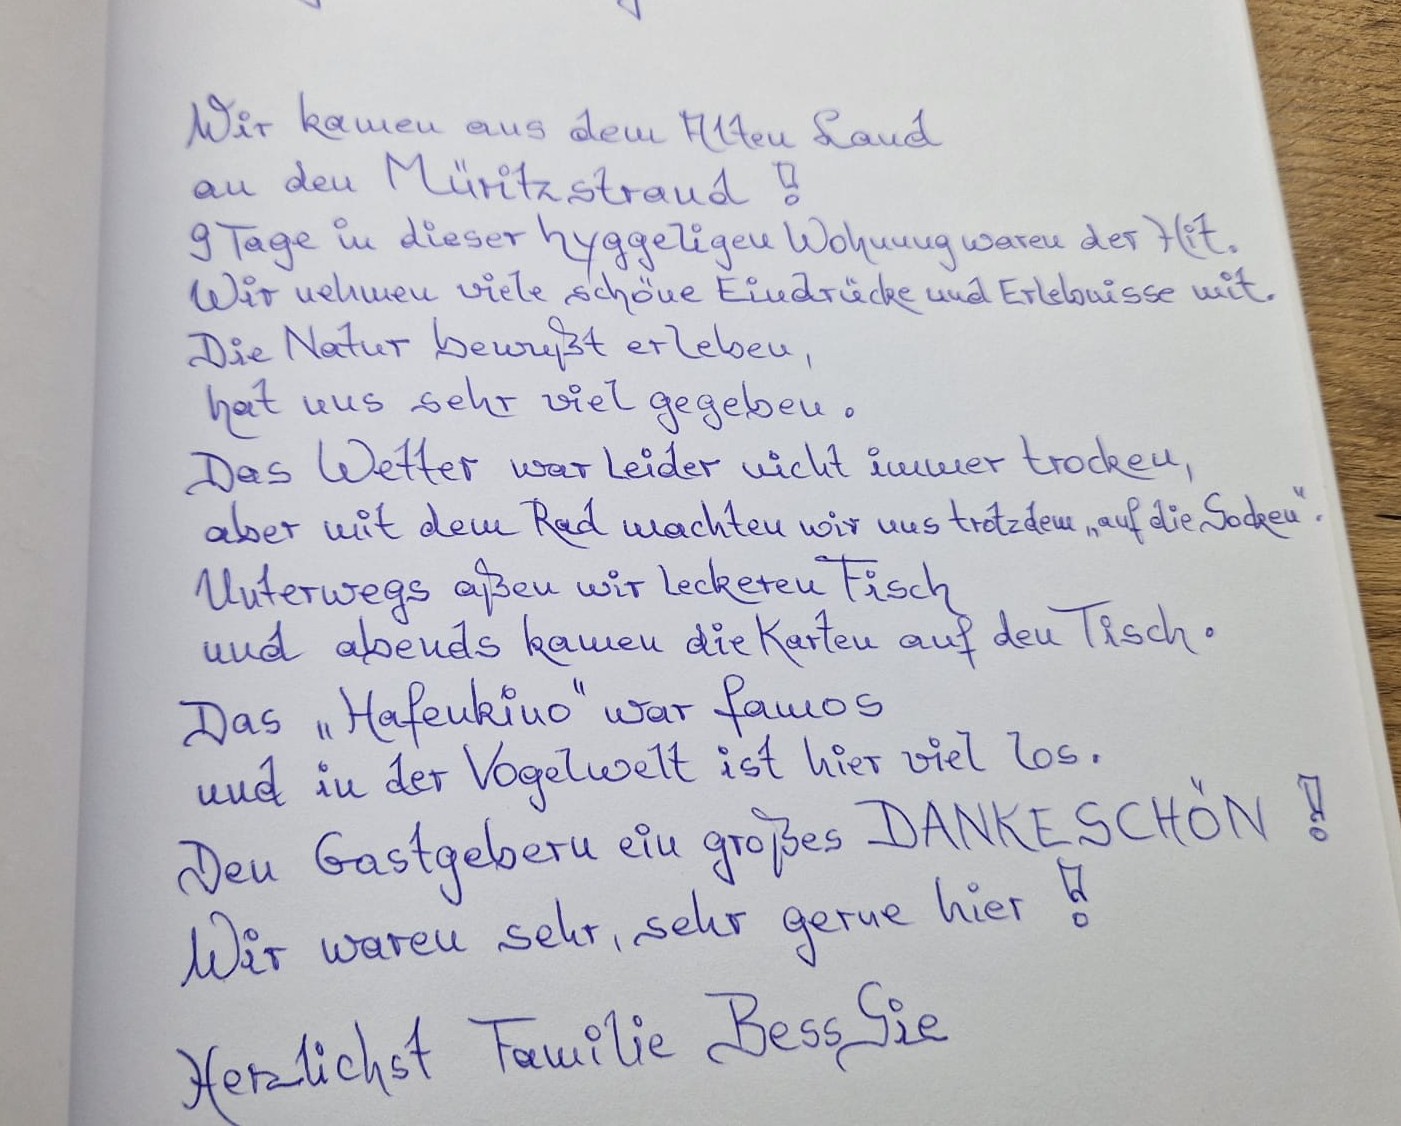 Wir kamen aus dem Alten Land
an den Müritzstrand!
9 Tage in dieser hyggeligen Wohnung waren der Hit.
Wir nehmen viele schöne Eindrücke und Erlebnisse mit.
Die Natur bewußt erleben,
hat uns sehr viel gegeben.
Das Wetter war leider nicht immer trocken,
aber mit dem Rad machten wir uns trotzdem „auf die Socken“.
Unterwegs aßen wir leckeren Fisch
und abends kamen die Karten auf den Tisch.
Das „Hafenkino“ war famos
und in der Vogelwelt ist hier viel los.
Den Gastgebern ein großes DANKESCHÖN!
Wir waren sehr, sehr gerne hier!
Herzlichst Familie